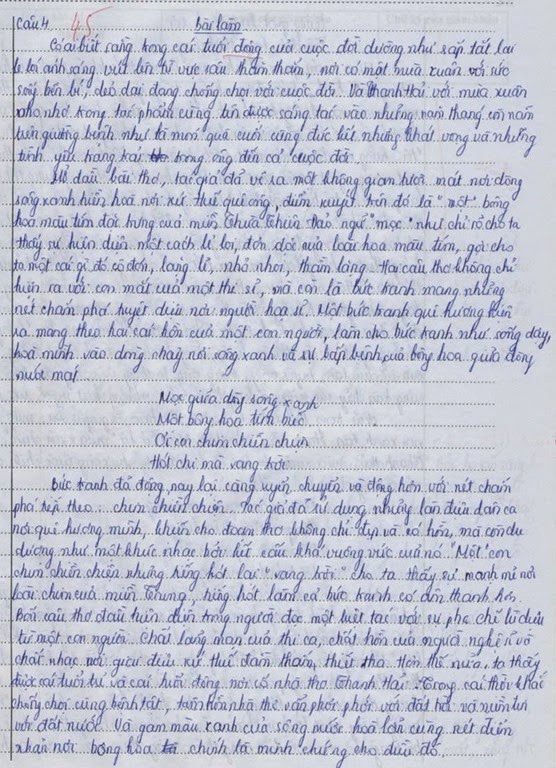 Câu 4. 4,5 Bài làm
Có ai bút sang trong cái tuổi đông của cuộc đời dường như sắp tắt lại
le lói ánh sáng vút lên từ vực sâu thăm thẳm, nơi có một mùa xuân với sức
sống bền bỉ, dẻo dai đang chống chọi với cuộc đời. Và Thanh Hải với mùa xuân
nho nhỏ trong tác phẩm cũng tên được sáng tác vào những năm tháng còn nằm
trên giường bệnh như là món quà cuối cùng đúc kết những khát vọng và những
tình yêu trong trong ông đến cả cuộc đời.
Mở đầu bài thơ, tác giả đã vẽ ra một không gian tươi mát nơi dòng
sông xanh hiền hoà nơi xứ Huế quê ông, điểm xuyết trên đó là "một" bông
hoa màu tím đặc trưng của miền Thừa Thiên. Đảo ngữ "mọc" như chỉ rõ cho ta
thấy sự hiện diện một cách lẻ loi, đơn độc của loài hoa màu tím, gợi cho
ta một cái gì đó cô đơn, lặng lẽ, nhỏ nhoi, thầm lặng. Hai câu thơ không chỉ
hiện ra với con mắt của một thi sĩ, mà còn là bức tranh mang những
nét chấm phá tuyệt diệu nơi người hoạ sĩ. Một bức tranh quê hương hiện
ra mang theo hai cái hồn của một con người, làm cho bức tranh như sống dậy,
hoà mình vào dòng chảy nơi sông xanh và sự bập bênh của bông hoa giữa dòng
nước mát
Mọc giữa dòng sông xanh
Một bông hoa tím biếc
Ơi con chim chiền chiện
Hót chi mà vang trời
Bức tranh đã động, nay lại càng uyển chuyển và động hơn với nét chấm
phá tiếp theo: chim chiền chiện. Tác giả đã sử dụng những làn điệu dân ca
nơi quê hương mình, khiến cho đoạn thơ không chỉ đẹp và có hồn, mà còn du
dương như một khúc nhạc bởi kết cấu khá vuông vức của nó. "Một" con
chim chiền chiện nhưng tiếng hót lại "vang trời" cho ta thấy sự mạnh mẽ nơi
loài chim của miền Trung, tiếng hót làm cả bức tranh có âm thanh hơn.
Bốn câu thơ đầu hiện diện trong người đọc một tuyệt tác với sự pha chế kì diệu
từ một con người. Chất lãng mạn của thi ca, chất hồn của người nghệ sĩ và
chất nhạc nơi giai điệu xứ Huế đằm thắm, thiết tha. Hơn thế nữa, ta thấy
được cái tuổi trẻ và cái tuổi đông nơi cố nhà thơ Thanh Hải. Trong cái thời khắc
chống chọi cùng bệnh tật, tâm hồn nhà thơ vẫn phơi phới với đất trời và
với đất nước. Và gam màu xanh của sông nước hoà lẫn cùng nét điểm
nhấn nơi bông hoa chính là minh chứng cho điều đó.